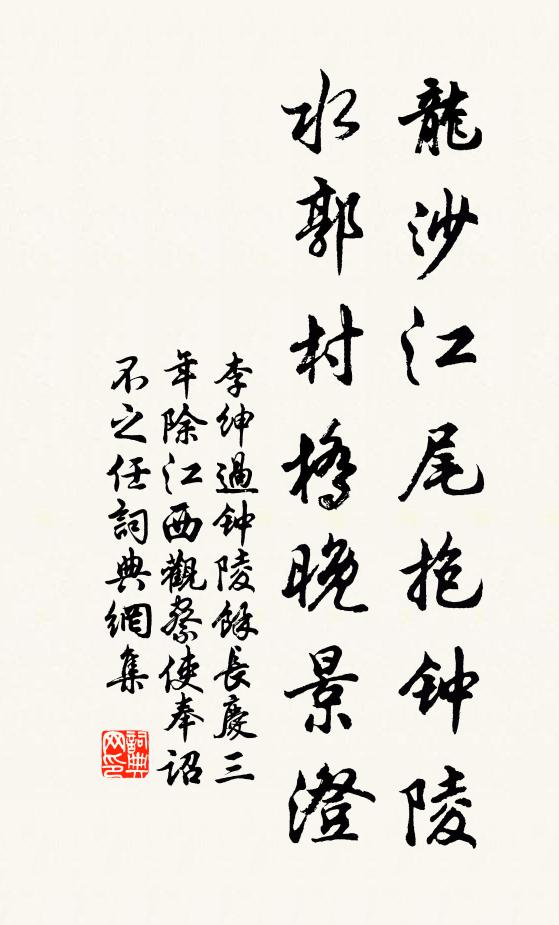 龍沙江尾抱钟陵
水郭村橋晚景澄
李绅過钟陵餘長慶三
年除江西觀察使奉詔
不之任詞典網集
詞典网印